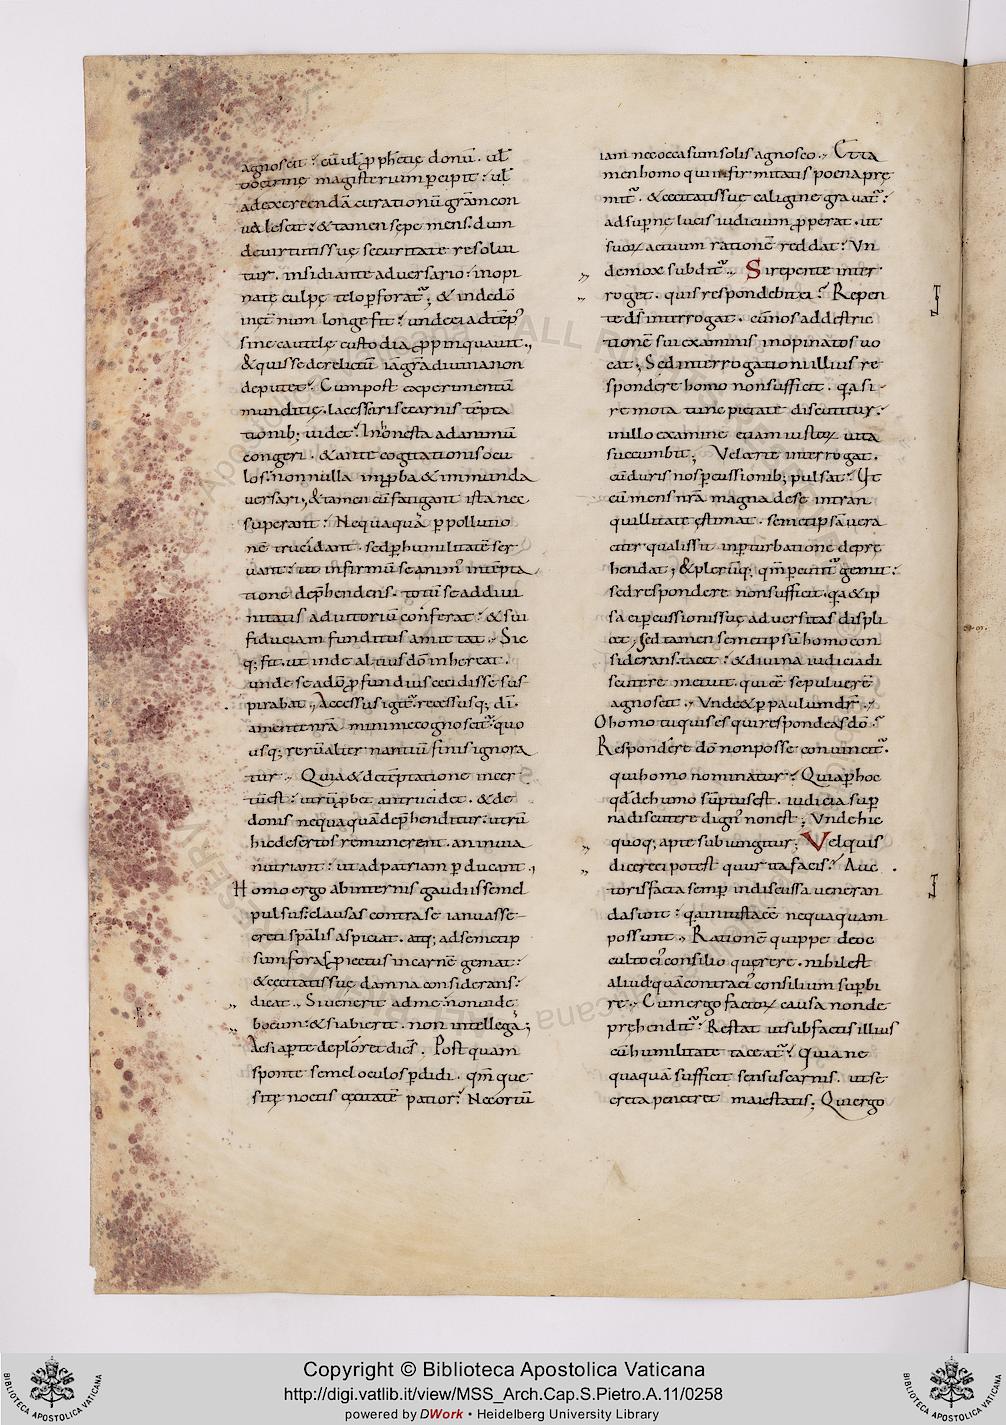 agnoscit? cū ul ꝓphetię donū. ul
doctrinę magisterium ꝑcipit? ul
ad exercendā curationū grām con
valescit? & tamen sepe mens. dum
de virtutis suę securitate resolui
tur. insidiante adversario? inopi
natę culpę telo ꝑforat᷑; & inde dō
in ęt̄num longe fit? unde ei ad tēpꝰ
sine cautelę custodia ꝓpinquavit.,
& quisse derelictū iā grā divina non
deputet? Cum post experimentū
munditię. lacesseri se carnis tēpta
tionib; videt? Inhonesta ad animū
congeri. & ante cogitationis ocu
los. non nulla inꝓba & immunda
versari, & tamen cū fatigant ista nec
superant? Nequaquā ꝑ pollutio
nē trucidant. sed ꝑ humilitatē ser
vant? ut infirmū se animꝰ in tēpta
tione dep̄hendens. totū se ad divi
nitatis adiutoriū conferat? & sui
fiduciam funditus amittat., Sic
q; fit. ut inde altius dō inhereat.
unde se a dō ꝓfundius cecidisse sus
pirabat., Accessus igit᷑. recessusq; dī.
a mente nrā minime cognoscit᷑? quo
usq; rerū alternantiū finis ignora
tur., Quia & de tēptatione incer
tū est? utrū ꝓbet an trucidet. & de
donis nequaquā dep̄henditur? utrū
hic desertos remunerent. an in via
nutriant? ut ad patriam ꝑducant.,
Homo ergo ab internis gaudiis semel
pulsus? clausas contra se ianuas se
creti spālis aspiciat. atq; ad semetip
sum foras ꝓiectus in carnē gemat?
& cecitatis suę damna considerans?
dicat., Si venerit ad me? non vide
bo eum? & si abierit. non intellegā;
Ac si aꝑte deplōret dicēs. Postquam
sponte semel oculos ꝑdidi. qm̄ que
sitę noctis cecitatē patior? Nec ortū
iam nec occasum solis agnosco., Et ta
men homo qui infirmitatis poena prę
mit᷑. & cecitatis suę caligine gravat᷑?
ad supnę lucis iudicium ꝓperat. ut
suoꝝ actuum rationē reddat? Un
de mox subdit᷑., Si repente inter
roget. quis respondebit ei? Repen
te ds̄ interrogat. cū nos ad distric
tionē sui examinis inopinatos vo
cat; Sed interrogationi illius re
spondere homo non sufficit. q̄a si
remota tunc pietate discutitur?
in illo examine etiam iustoꝝ vita
succumbit; Vel certe interrogat.
cū duris nos ꝑcussionib; pulsat? Ut
cū mens nrā magna de se in tran
quillitate ęstimat. semetipsā vera
citer qualis sit in ꝑturbatione deprę
hendat; & plerūq; qm̄ ꝑcutit᷑ gemit?
sed respondere non sufficit. q̄a & ip
sa ei ꝑcussionis suę adversitas displi
cet, sed tamen semetipsū homo con
siderans. tacet? & divina iudicia di
scutere metuit. qui ee sę pulverē
agnoscit., Unde & ꝑ paulum dr̄.,
O homo tu quis es qui respondeas dō?
Respondere dō non posse convincit᷑.
qui homo nominatur? Quia ꝑ hoc
qd̄ de humo sūptus est. iudicia sup̄
na discutere dignꝰ non est; Unde hic
quoq; apte subiungitur; Vel quis
dicere ei potest quur ita facis? Auc
toris facta semꝑ indiscussa veneran
da sunt? q̄a iniusta eē nequaquam
possunt., Rationē quippe de oc
culto eiꝰ consilio querere. nihil est
aliud quā contra eiꝰ consilium suꝑbi
re., Cum ergo factoꝝ causa non de
prehendit᷑? Restat ut sub factis illius
cū humilitate taceat᷑? Quia ne
quaquā sufficit sensus carnis. ut se
creta penetret maiestatis; Qui ergo
ALL RIGHTS RESERVED
Copyright © Biblioteca Apostolica Vaticana
http://digi.vatlib.it/view/MSS_Arch.Cap.S.Pietro.A.11/0258
powered by DWork • Heidelberg University Library
BIBLIOTECA APOSTOLICA VATICANA
BIBLIOTECA APOSTOLICA VATICANA